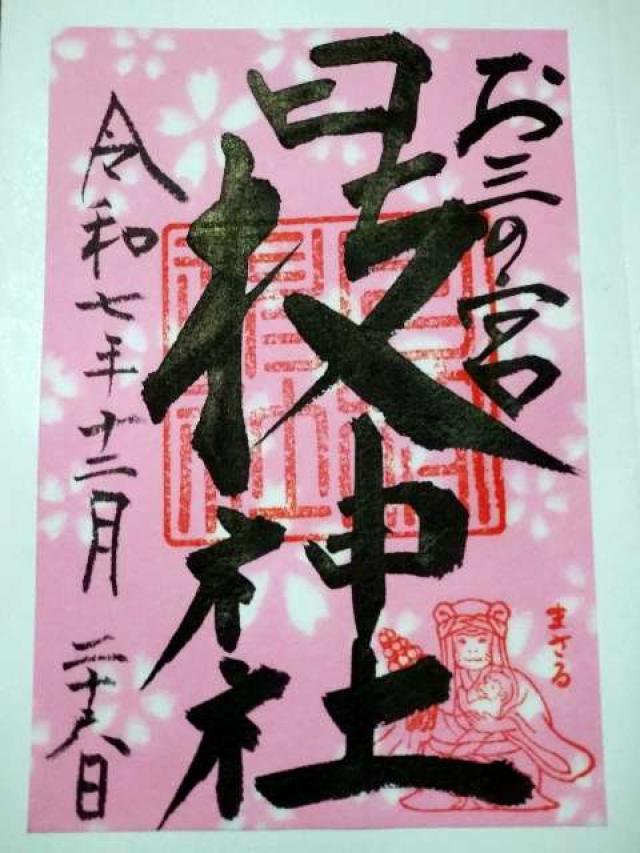 お三の宮
日枝神社
令和七年十二月二十八日
まさる